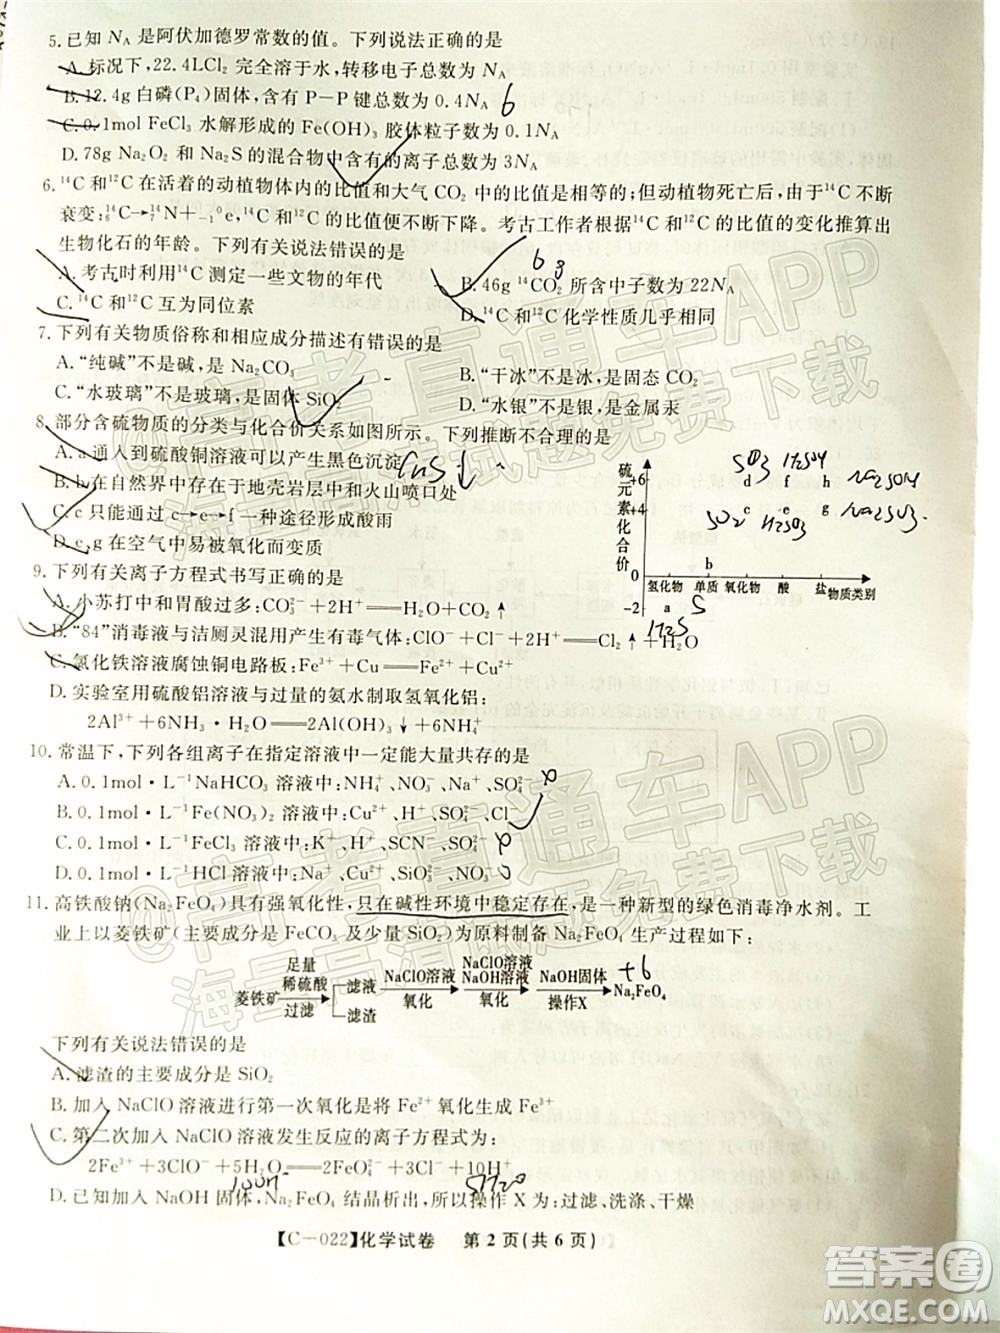 5.已知 NA 是阿伏加德罗常数的值。下列说法正确的是
A.标况下,22.4LCl2 完全溶于水,转移电子总数为 NA
B.12.4g 白磷(P4)固体,含有 P—P 键总数为 0.4NA 6
C.0.1mol FeCl3 水解形成的 Fe(OH)3 胶体粒子数为 0.1NA
D.78g Na2O2 和 Na2S 的混合物中含有的离子总数为 3NA
6.14C 和12C 在活着的动植物体内的比值和大气 CO2 中的比值是相等的;但动植物死亡后,由于14C 不断
衰变:¹⁴₆C→¹⁴₇N+⁰₋₁e,14C 和12C 的比值便不断下降。考古工作者根据14C 和12C 的比值的变化推算出
生物化石的年龄。下列有关说法错误的是
A.考古时利用14C 测定一些文物的年代
B.46g 14CO2 所含中子数为 22NA
C.14C 和12C 互为同位素
D.14C 和12C 化学性质几乎相同
7.下列有关物质俗称和相应成分描述有错误的是
A.“纯碱”不是碱,是 Na2CO3
B.“干冰”不是冰,是固态 CO2
C.“水玻璃”不是玻璃,是固体 SiO2
D.“水银”不是银,是金属汞
8.部分含硫物质的分类与化合价关系如图所示。下列推断不合理的是
A.a 通入到硫酸铜溶液可以产生黑色沉淀 CuS↓
B.b 在自然界中存在于地壳岩层中和火山喷口处
C.c 只能通过 c→e→f 一种途径形成酸雨
D.e、g 在空气中易被氧化而变质
硫元素化合价
+6
+4
0
−2
SO3 H2SO4
d f h Na2SO4
c e g Na2SO3
SO2 H2SO3
b
氢化物 单质 氧化物 酸 盐 物质类别
a S
H2S
9.下列有关离子方程式书写正确的是
A.小苏打中和胃酸过多:CO3²⁻+2H⁺═H2O+CO2↑
B.“84”消毒液与洁厕灵混用产生有毒气体:ClO⁻+Cl⁻+2H⁺═Cl2↑+H2O
C.氯化铁溶液腐蚀铜电路板:Fe³⁺+Cu═Fe²⁺+Cu²⁺
D.实验室用硫酸铝溶液与过量的氨水制取氢氧化铝:
2Al³⁺+6NH3·H2O═2Al(OH)3↓+6NH4⁺
10.常温下,下列各组离子在指定溶液中一定能大量共存的是
A.0.1mol·L⁻¹NaHCO3 溶液中:NH4⁺、NO3⁻、Na⁺、SO4²⁻
B.0.1mol·L⁻¹Fe(NO3)2 溶液中:Cu²⁺、H⁺、SO4²⁻、Cl⁻
C.0.1mol·L⁻¹FeCl3 溶液中:K⁺、H⁺、SCN⁻、SO4²⁻
D.0.1mol·L⁻¹HCl 溶液中:Na⁺、Cu²⁺、SO4²⁻、NO3⁻
11.高铁酸钠(Na2FeO4)具有强氧化性,只在碱性环境中稳定存在,是一种新型的绿色消毒净水剂。工
业上以菱铁矿(主要成分是 FeCO3 及少量 SiO2)为原料制备 Na2FeO4 生产过程如下:
菱铁矿 足量稀硫酸 过滤 滤液 滤渣 NaClO溶液 氧化 NaClO溶液 NaOH溶液 氧化 NaOH固体 操作X Na2FeO4 +6
下列有关说法错误的是
A.滤渣的主要成分是 SiO2
B.加入 NaClO 溶液进行第一次氧化是将 Fe²⁺氧化生成 Fe³⁺
C.第二次加入 NaClO 溶液发生反应的离子方程式为:
2Fe³⁺+3ClO⁻+5H2O═2FeO4²⁻+3Cl⁻+10H⁺
10OH⁻ 5H2O
D.已知加入 NaOH 固体,Na2FeO4 结晶析出,所以操作 X 为:过滤、洗涤、干燥
【C—022】化学试卷 第 2 页(共 6 页)
@高考直通车APP
海量高清试题免费下载
@高考直通车APP
海量高清试题免费下载
答案圈
MXQE.COM